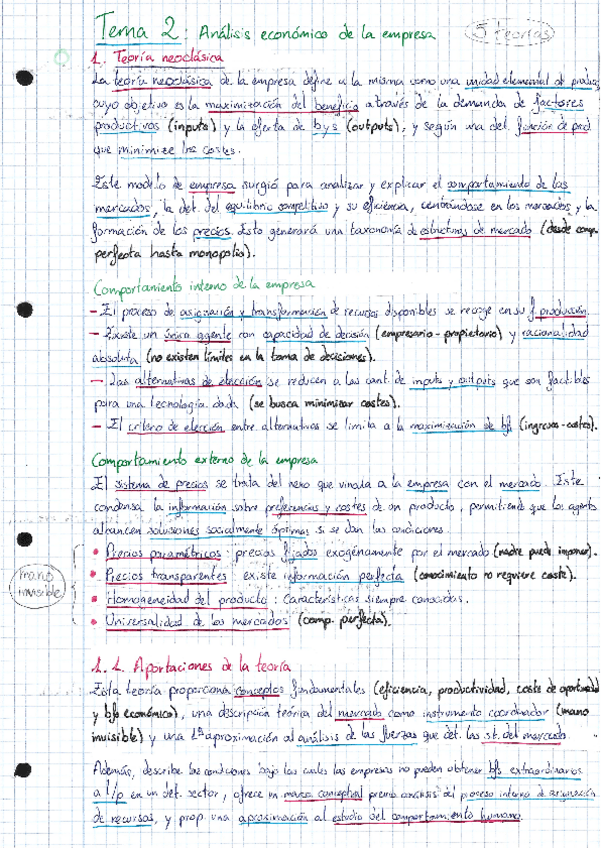 Tema 2: Análisis económico de la empresa
5 teorías
1. Teoría neoclásica
La teoría neoclásica de la empresa define a la misma como una unidad elemental de produc.
cuyo objetivo es la maximización del beneficio a través de la demanda de factores
productivos (inputs) y la oferta de bys (outputs), y según una det. función de prod.
que minimice los costes.
Este modelo de empresa surgió para analizar y explicar el comportamiento de los
mercados, la det. del equilibrio competitivo y su eficiencia, centrándose en los mercados y la
formación de los precios. Esto generará una taxonomía de estructuras de mercado (desde comp.
perfecta hasta monopolio).
Comportamiento interno de la empresa
- El proceso de asignación y transformación de recursos disponibles se recoge en su f. producción.
- Existe un único agente con capacidad de decisión (empresario-propietario) y racionalidad
absoluta (no existen límites en la toma de decisiones).
- Las alternativas de elección se reducen a las cant. de inputs y outputs que son factibles
para una tecnología dada (se busca minimizar costes).
- El criterio de elección entre alternativas se limita a la maximización de bfs (ingresos-costes).
Comportamiento externo de la empresa
El sistema de precios se trata del nexo que vincula a la empresa con el mercado. Este
condensa la información sobre preferencias y costes de un producto, permitiendo que los agentes
alcancen soluciones socialmente óptimas si se dan las condiciones:
mano invisible
• Precios paramétricos: precios fijados exogénamente por el mercado (nadie puede imponer).
• Precios transparentes: existe información perfecta (conocimiento no requiere coste).
• Homogeneidad del producto: Características siempre conocidas.
• Universalidad de los mercados (comp. perfecta).
1.1. Aportaciones de la teoría
Esta teoría proporciona conceptos fundamentales (eficiencia, productividad, coste de oportunidad
y bfo económico), una descripción teórica del mercado como instrumento coordinador (mano
invisible) y una 1ª aproximación al análisis de las fuerzas que det. las st. del mercado.
Además, describe las condiciones bajo las cuales las empresas no pueden obtener bfs extraordinarios
a l/p en un det. sector, ofrece un marco conceptual previo análisis del proceso interno de asignación
de recursos, y prop. una aproximación al estudio del comportamiento humano.